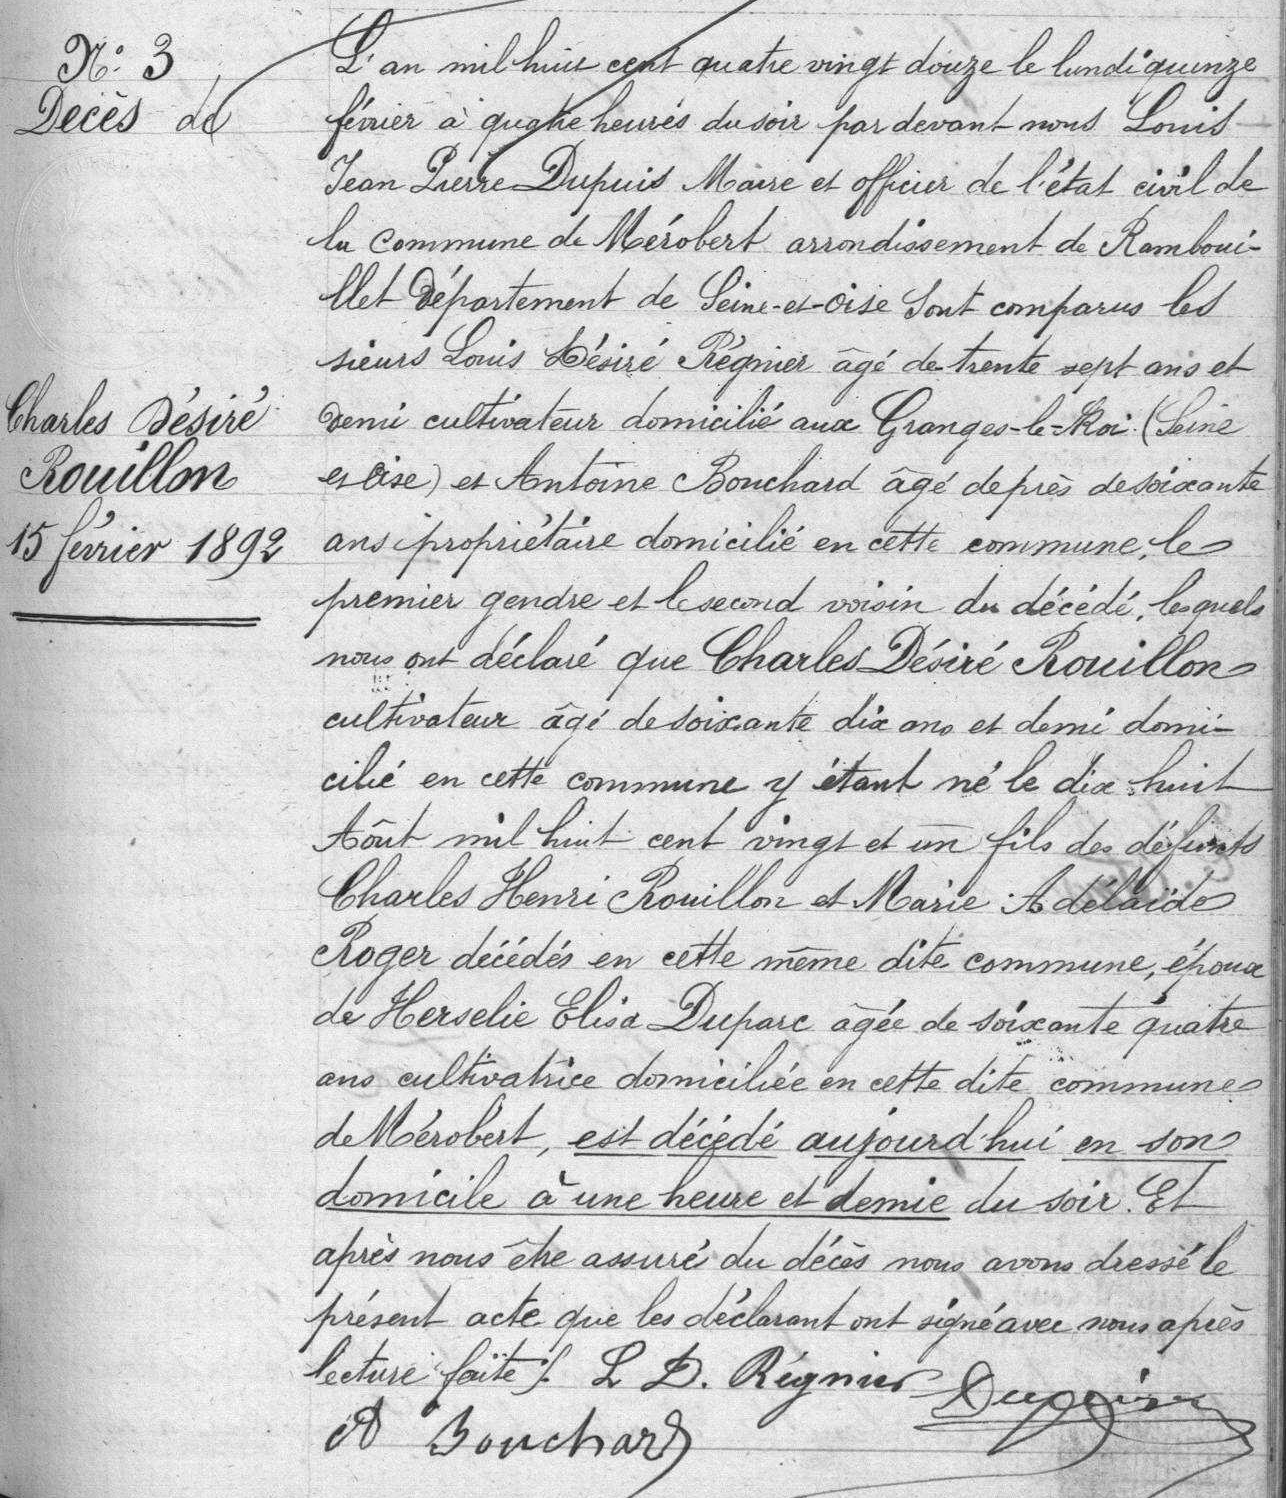 N° 3
Décès de
Charles Désiré
Rouillon
15 février 1892
L'an mil huit cent quatre vingt douze le lundi quinze
février à quatre heures du soir par devant nous Louis
Jean Pierre Dupuis Maire et officier de l'état civil de
la commune de Mérobert arrondissement de Ramboui-
llet département de Seine-et-Oise sont comparus les
sieurs Louis Désiré Régnier âgé de trente sept ans et
demi cultivateur domicilié aux Granges-le-Roi (Seine
et Oise) et Antoine Bouchard âgé de près de soixante
ans propriétaire domicilié en cette commune, le
premier gendre et le second voisin du décédé, lesquels
nous ont déclaré que Charles Désiré Rouillon
cultivateur âgé de soixante dix ans et demi domi-
cilié en cette commune y étant né le dix huit
Aôut mil huit cent vingt et un fils des défunts
Charles Henri Rouillon et Marie Adélaïde
Roger décédés en cette même dite commune, époux
de Herselie Elisa Duparc âgée de soixante quatre
ans cultivatrice domiciliée en cette dite commune
de Mérobert, est décédé aujourd'hui en son
domicile à une heure et demie du soir. Et
après nous être assuré du décès nous avons dressé le
présent acte que les déclarant ont signé avec nous après
lecture faite ./. L D. Régnier Dupuis
A Bouchard